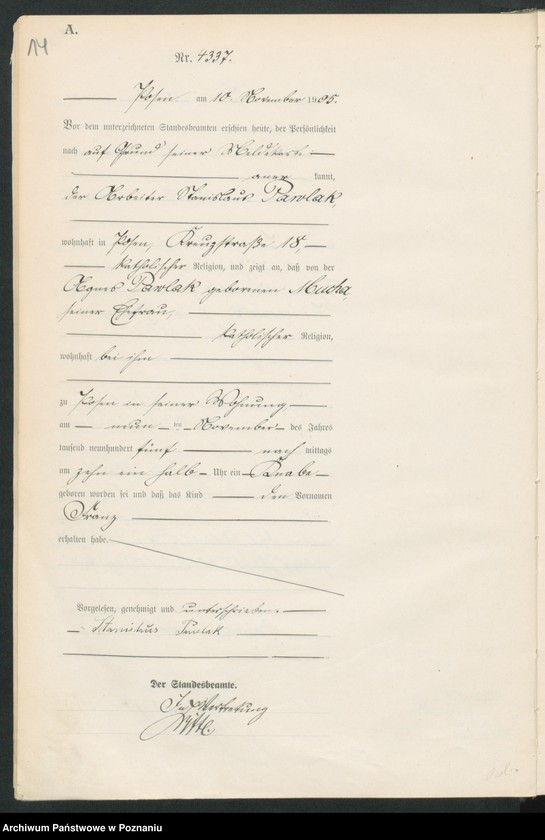 A.
14
Nr. 4337.
Posen am 10. November 1905.
Vor dem unterzeichneten Standesbeamten erschien heute, der Persönlichkeit
nach auf Grund seiner Meldekarte
aner kannt,
der Arbeiter Stanislaus Pawlak,
wohnhaft in Posen, Kreuzstraße 15,
katholischer Religion, und zeigt an, daß von der
Agnes Pawlak geborenen Mucha,
seiner Ehefrau,
katholischer Religion,
wohnhaft bei ihm
zu Posen in seiner Wohnung
am neun ten November des Jahres
tausend neunhundert fünf nach mittags
um zehn ein halb Uhr ein Knabe
geboren worden sei und daß das Kind den Vornamen
Franz
erhalten habe.
Vorgelesen, genehmigt und unterschrieben:
Stanislaus Pawlak
Der Standesbeamte.
In Vertretung
Archiwum Państwowe w Poznaniu